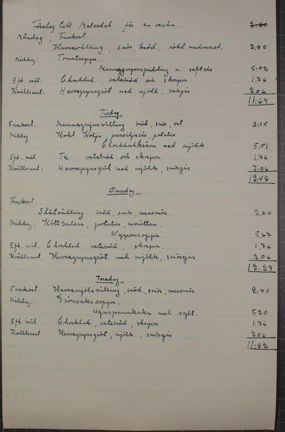 Förslag till Matsedel för en vecka.
Måndag. Frukost:
Havrevälling, smör, bröd, rökt medvurst. 2.80
Middag: Tomatsoppa
Mannagrynspudding u. saftsås 5.02
Eft. mid. Choklad vetebröd och skorpor 1.76
Kvällsmat: Havregrynsgröt med mjölk, smörgås 2.06
11.64
Tisdag.
Frukost: Mannagrynsvälling bröd, smör, ost
Middag Kokt kolja, persiljesås potatis
Chokladkräm med mjölk 5.51
Eft. mid. Te, vetebröd och skorpor. 1.76
Kvällsmat: Havregrynsgröt med mjölk, smörgås 2.06
12.48
Onsdag.
Frukost:
välling, bröd, smör, messmör. 2.80
Middag: Köttbullar, potatis, morötter.
Nyponsoppa 5.67
Eft. mid. Choklad vetebröd, skorpor. 1.76
Kvällsmat Havregrynsgröt med mjölk, smörgås 2.06
12.29
Torsdag.
Frukost: Havremjölsvälling, bröd, smör, messmör 2.80
Middag: Grönsakssoppa.
Ugnspannkaka med sylt. 5.20
Eft. mid. Choklad, vetebröd, skorpor 1.76
Kvällsmat Havregrynsgröt, mjölk, smörgås 2.06
11.82